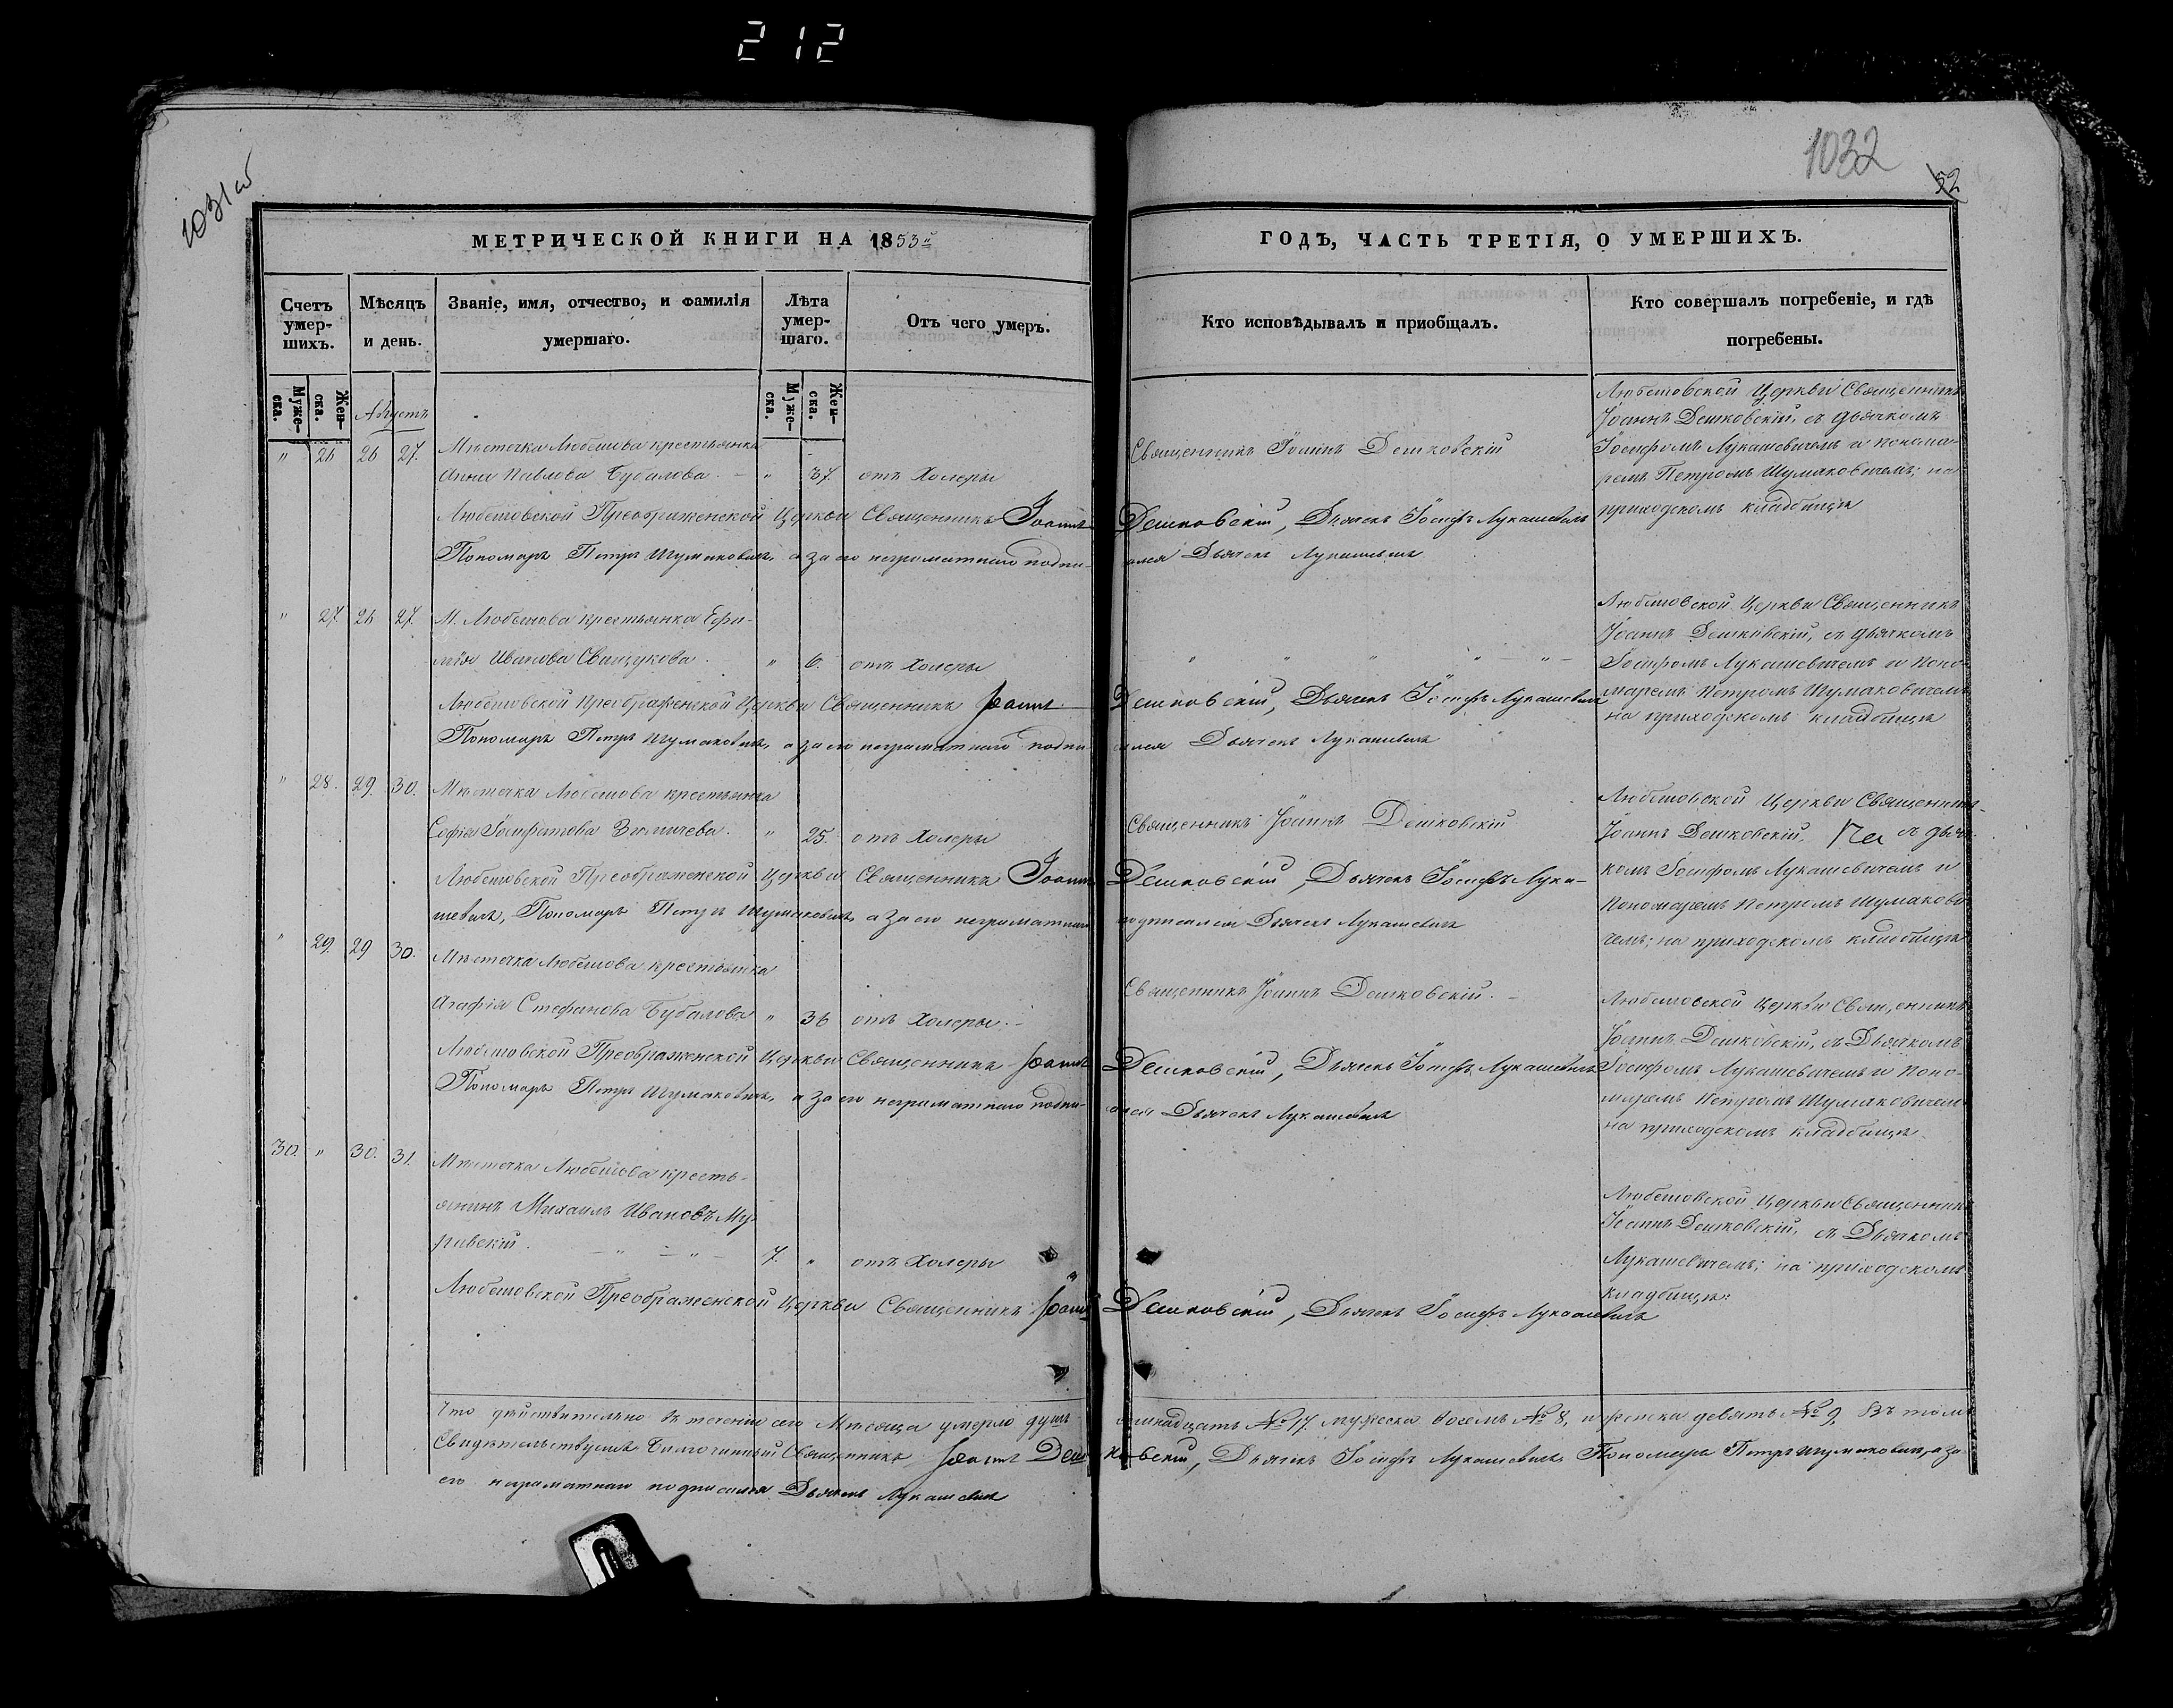 212
1032
52
МЕТРИЧЕСКОЙ КНИГИ НА 1853й
Счетъ умер-
шихъ.
Муже-
ска.
Жен-
ска.
Мѣсяцъ
и день.
Званіе, имя, отчество, и фамилія
умершаго.
Лѣта
умер-
шаго.
Муже-
ска.
Жен-
ска.
Отъ чего умеръ.
Августъ
" 26 26 27. Мѣстечка Любешова крестьянка
Анна Павлова Бубалова. - " 37. отъ Холеры
Любешовской Преображенской Церкви Священникъ Іоаннъ
Пономарь Петръ Шумаковичъ, а за его неграматнаго подпи-
" 27. 26 27 М. Любешова крестьянка Ефи-
мія Иванова Свищукова. " 6. отъ Холеры
Любешовской Преображенской Церкви Священникъ Іоаннъ
Пономарь Петръ Шумаковичъ, а за его неграматнаго подпи-
" 28. 29. 30. Мѣстечка Любешова крестьянка
Софія Іосифатова " 25. отъ Холеры
Любешовской Преображенской Церкви Священникъ Іоаннъ
шевичъ, Пономарь Петръ Шумаковичъ, а за его неграматнаго
" 29. 29 30. Мѣстечка Любешова крестьянка
Агафія Стефанова Бубалова " 36 отъ Холеры. -
Любешовской Преображенской Церкви Священникъ Іоаннъ
Пономарь Петръ Шумаковичъ, а за его неграматнаго подпи-
30. " 30. 31. Мѣстечка Любешова кресть-
янинъ Михаилъ Ивановъ Му-
равскій. 7. " отъ Холеры
Любешовской Преображенской Церкви Священникъ Іоаннъ
Что дѣйствительно въ теченіи сего Мѣсяца умерло душъ
Свидѣтельствуемъ Благочинный Священникъ Іоаннъ Деш
его неграматнаго подписался Дьячекъ Лукашевичъ
ГОДЪ, ЧАСТЬ ТРЕТІЯ, О УМЕРШИХЪ.
Кто исповѣдывалъ и пріобщалъ.
Кто совершалъ погребеніе, и гдѣ
погребены.
Священникъ Іоаннъ Дешковскій
Любешовской Церкви Священникъ
Іоаннъ Дешковскій, съ дьячкомъ
Іосифомъ Лукашевичемъ и понома-
ремъ Петромъ Шумаковичемъ; на
приходскомъ кладбищѣ
Дешковскій, Дьячекъ Іосифъ Лукашевичъ
сался Дьячекъ Лукашевичъ
Любешовской Церкви Священникъ
Іоаннъ Дешковскій, съ дьячкомъ
Іосифомъ Лукашевичемъ и Поно-
маремъ Петромъ Шумаковичемъ
на приходскомъ кладбищѣ
Дешковскій, Дьячекъ Іосифъ Лукашевичъ
сался Дьячекъ Лукашевичъ
Священникъ Іоаннъ Дешковскій
Любешовской Церкви Священникъ
Іоаннъ Дешковскій, съ дьяч-
комъ Іосифомъ Лукашевичемъ и
Пономаремъ Петромъ Шумакови
чемъ; на приходскомъ кладбищѣ
Дешковскій, Дьячекъ Іосифъ Лука-
подписался Дьячекъ Лукашевичъ
Священникъ Іоаннъ Дешковскій. -
Любешовской Церкви Священникъ
Іоаннъ Дешковскій, съ Дьячкомъ
Іосифомъ Лукашевичемъ и Поно-
маремъ Петромъ Шумаковичемъ
на приходскомъ кладбищѣ
Дешковскій, Дьячекъ Іосифъ Лукашевичъ
сался Дьячекъ Лукашевичъ
Любешовской Церкви Священникъ
Іоаннъ Дешковскій, съ Дьячкомъ
Лукашевичемъ; на приходскомъ
кладбищѣ:
Дешковскій, Дьячекъ Іосифъ Лукашевичъ
семнадцать № 17. мужеска восемь № 8, и женска девять № 9, Въ томъ
ковскій, Дьячекъ Іосифъ Лукашевичъ, Пономарь Петръ Шумаковичъ, а за